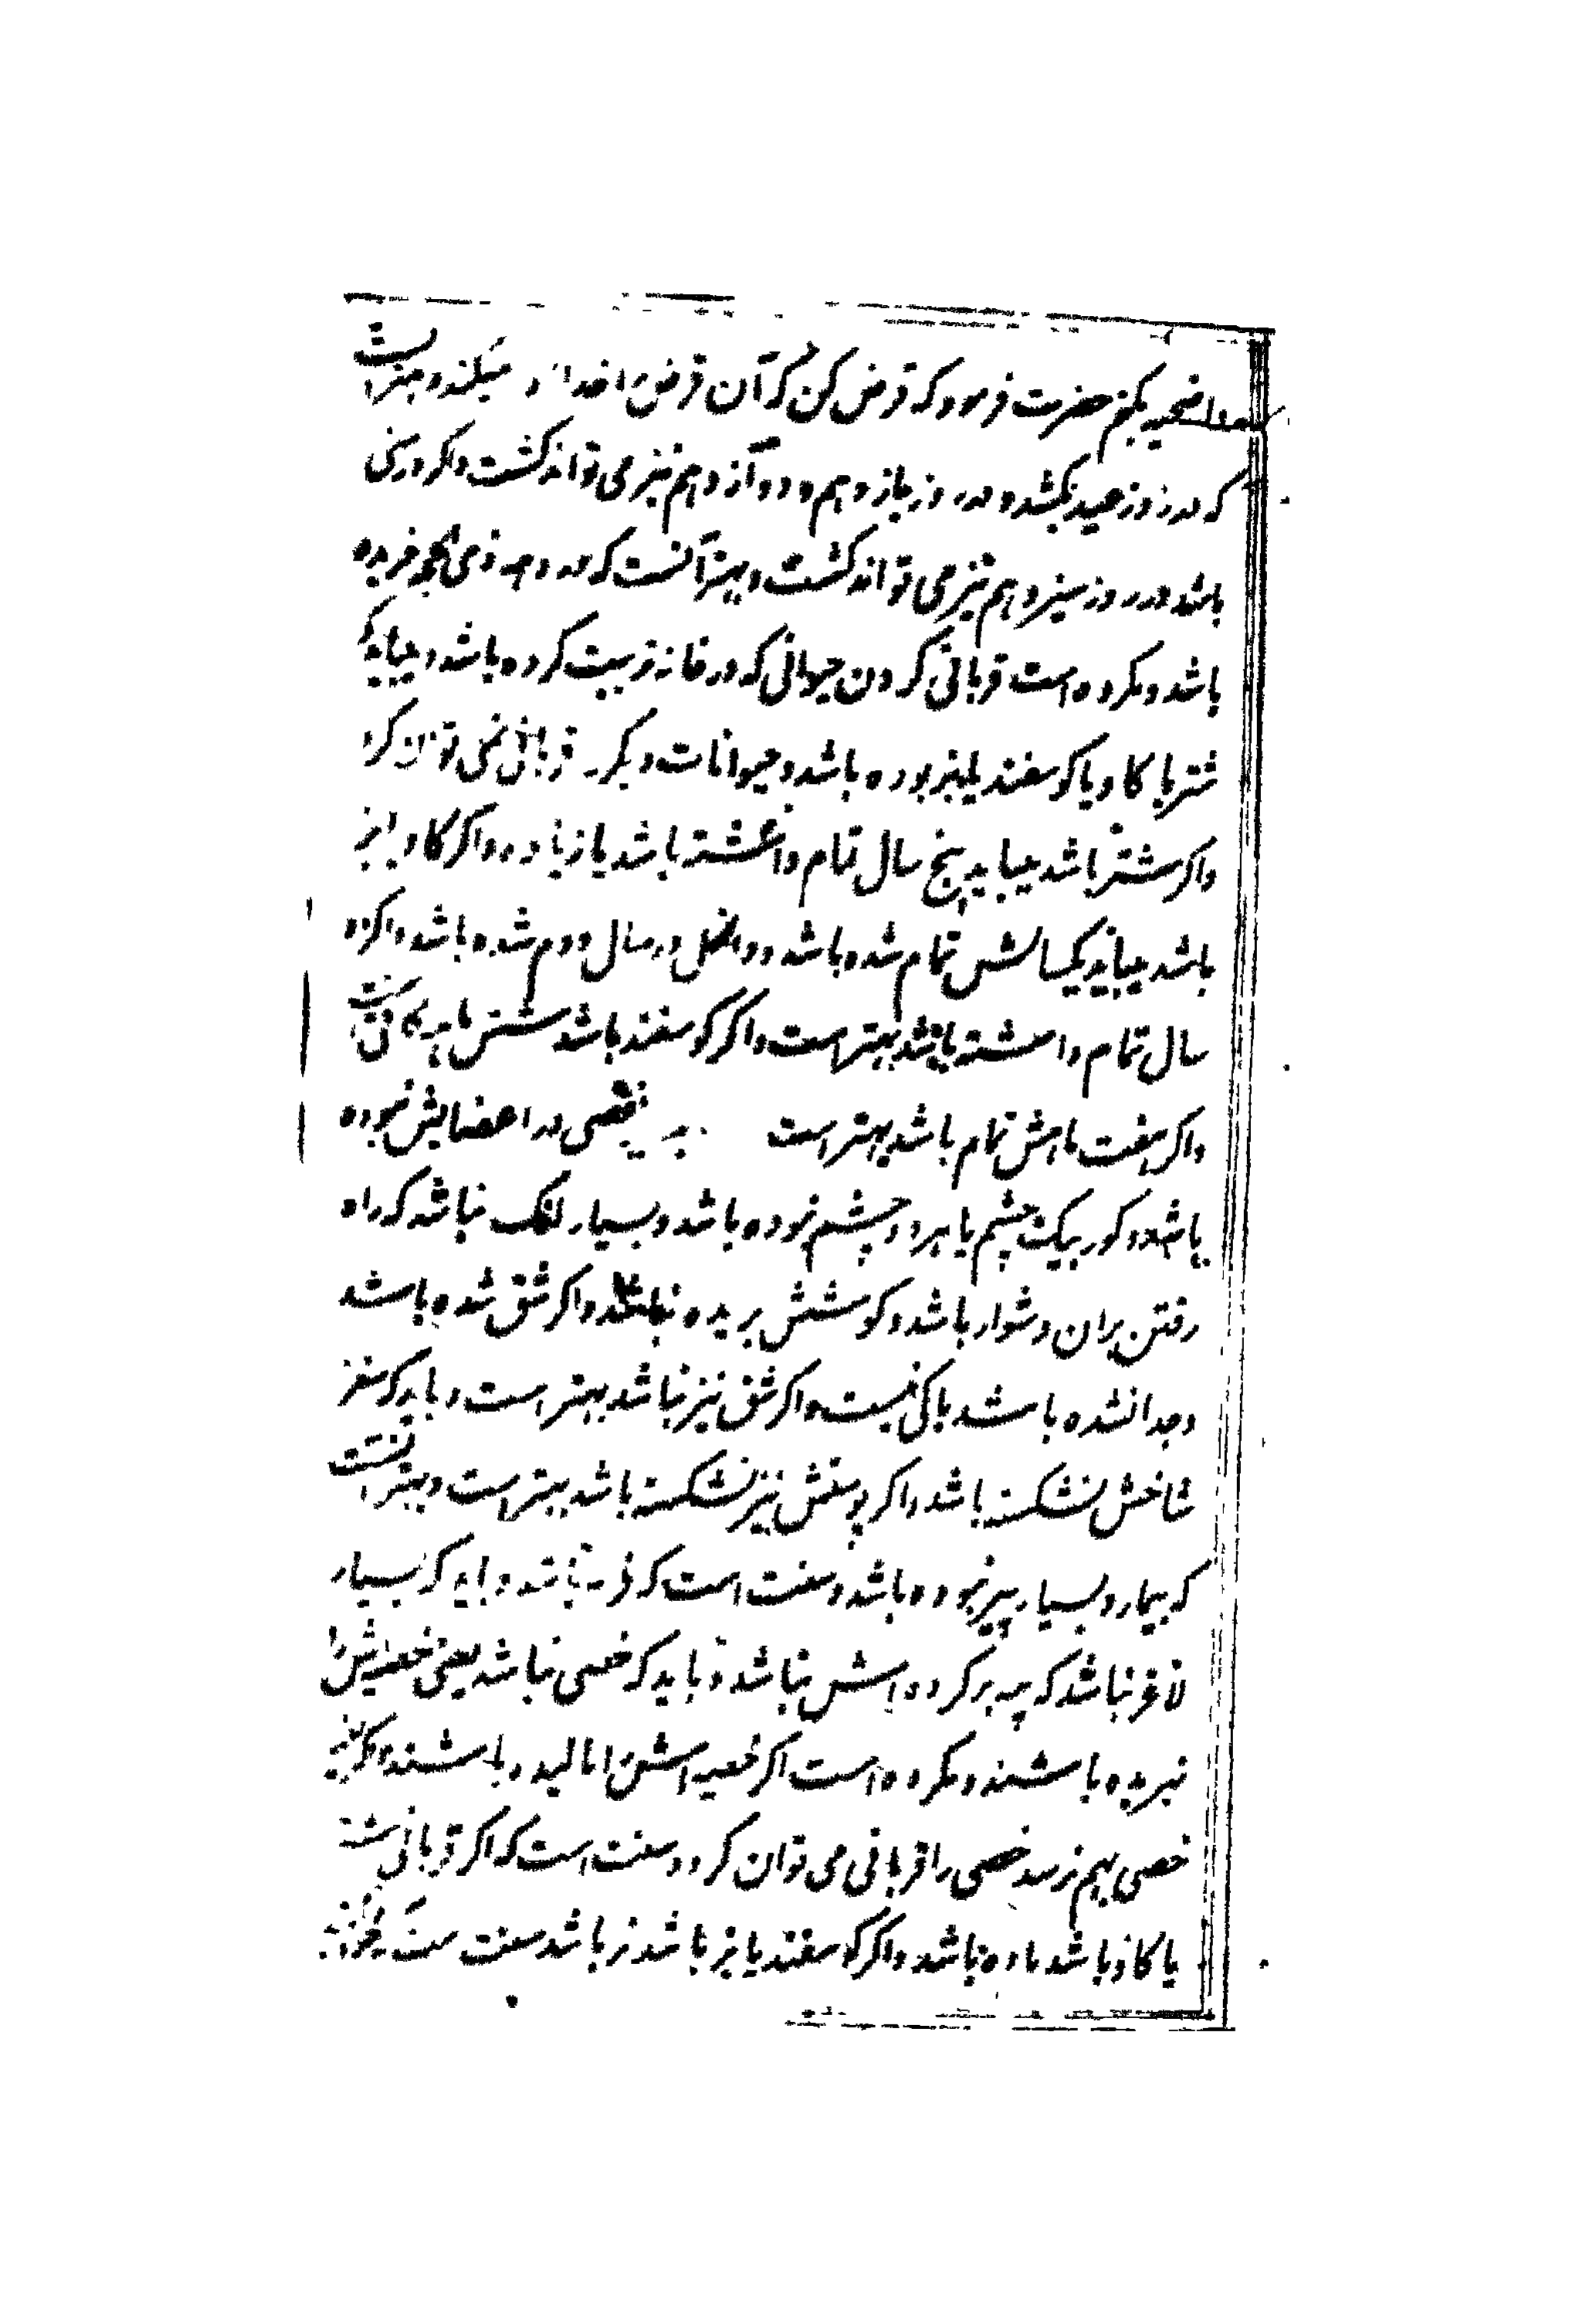 اضحیه بکنم حضرت فرمود که قرض کن که آن قرض را خدا ادا میکند و بهتر آنست
که در روز عید بکشد و در روز یازدهم و دوازدهم نیز می تواند کشت و اگر در منی
باشد در روز سیزدهم نیز می تواند کشت و بهتر آنست که در دهه ذی الحجه خریده
باشد و مکروه است قربانی کردن حیوانی که در خانه تربیت کرده باشد و میباید که
شتر یا کاو یا کوسفند یا بز بوده باشد و حیوانات دیگر قربانی نمی توان کرد
و اکر شتر باشد میباید پنج سال تمام داشته باشد یا زیاده و اکر کاو یا بز
باشد میباید یکسالش تمام شده باشد و داخل در سال دوم شده باشد و اکر دو
سال تمام داشته باشد بهتر است و اکر کوسفند باشد شش ماهه کافی است
و اکر هفت ماهش تمام باشد بهتر است نقصی در اعضایش نبوده
باشد و کور بیک چشم یا بهر دو چشم نبوده باشد و بسیار لنک نباشد که راه
رفتن بران دشوار باشد و کوشش بریده نباشد و اکر شق شده باشد
و جدا نشده باشد باکی نیست و اکر شق نیز نباشد بهتر است و باید که مغز
شاخش نشکسته باشد و اکر پوستش نیز نشکسته باشد بهتر است و بهتر آنست
که بیمار و بسیار پیر نبوده باشد و سنت است که فربه باشد و باید که بسیار
لاغر نباشد که پیه بر کرده اش نباشد و باید که خصی نباشد یعنی خصیه اش را
نبریده باشند و مکروه است اکر خصیه اش را مالیده باشند و اکر غیر
خصی بهم نرسد خصی را قربانی می توان کرد و سنت است که اکر قربانی شتر
یا کاو باشد ماده باشد و اکر کوسفند یا بز باشد نر باشد سنت است